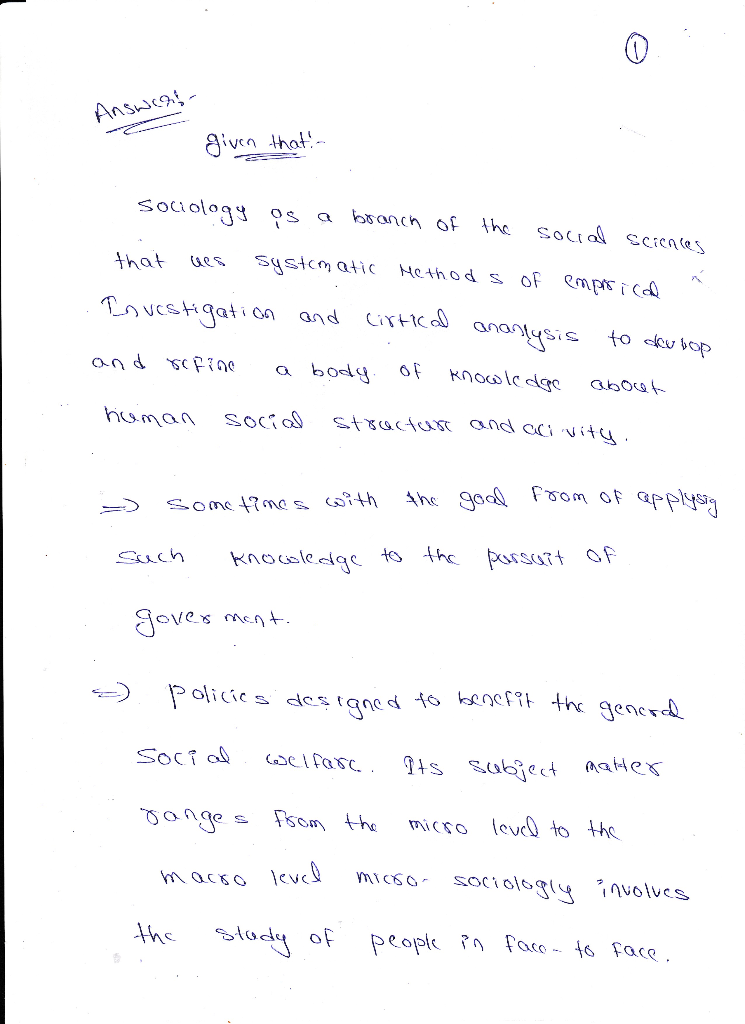 ①
Answer:-
given that:-
Sociology is a branch of the social sciences
that ues systematic Methods of emprical
Investigation and cirtical ananlysis to devlop
and refine a body of knowledge about
human social structure and aci vity.
=> sometimes with the goal from of applysig
such knowledge to the parsuit of
gover ment.
=> policies designed to benefit the general
social welfare. Its subject matter
ranges from the micro level to the
macro level micro- sociologly involves
the study of people in face- to face.